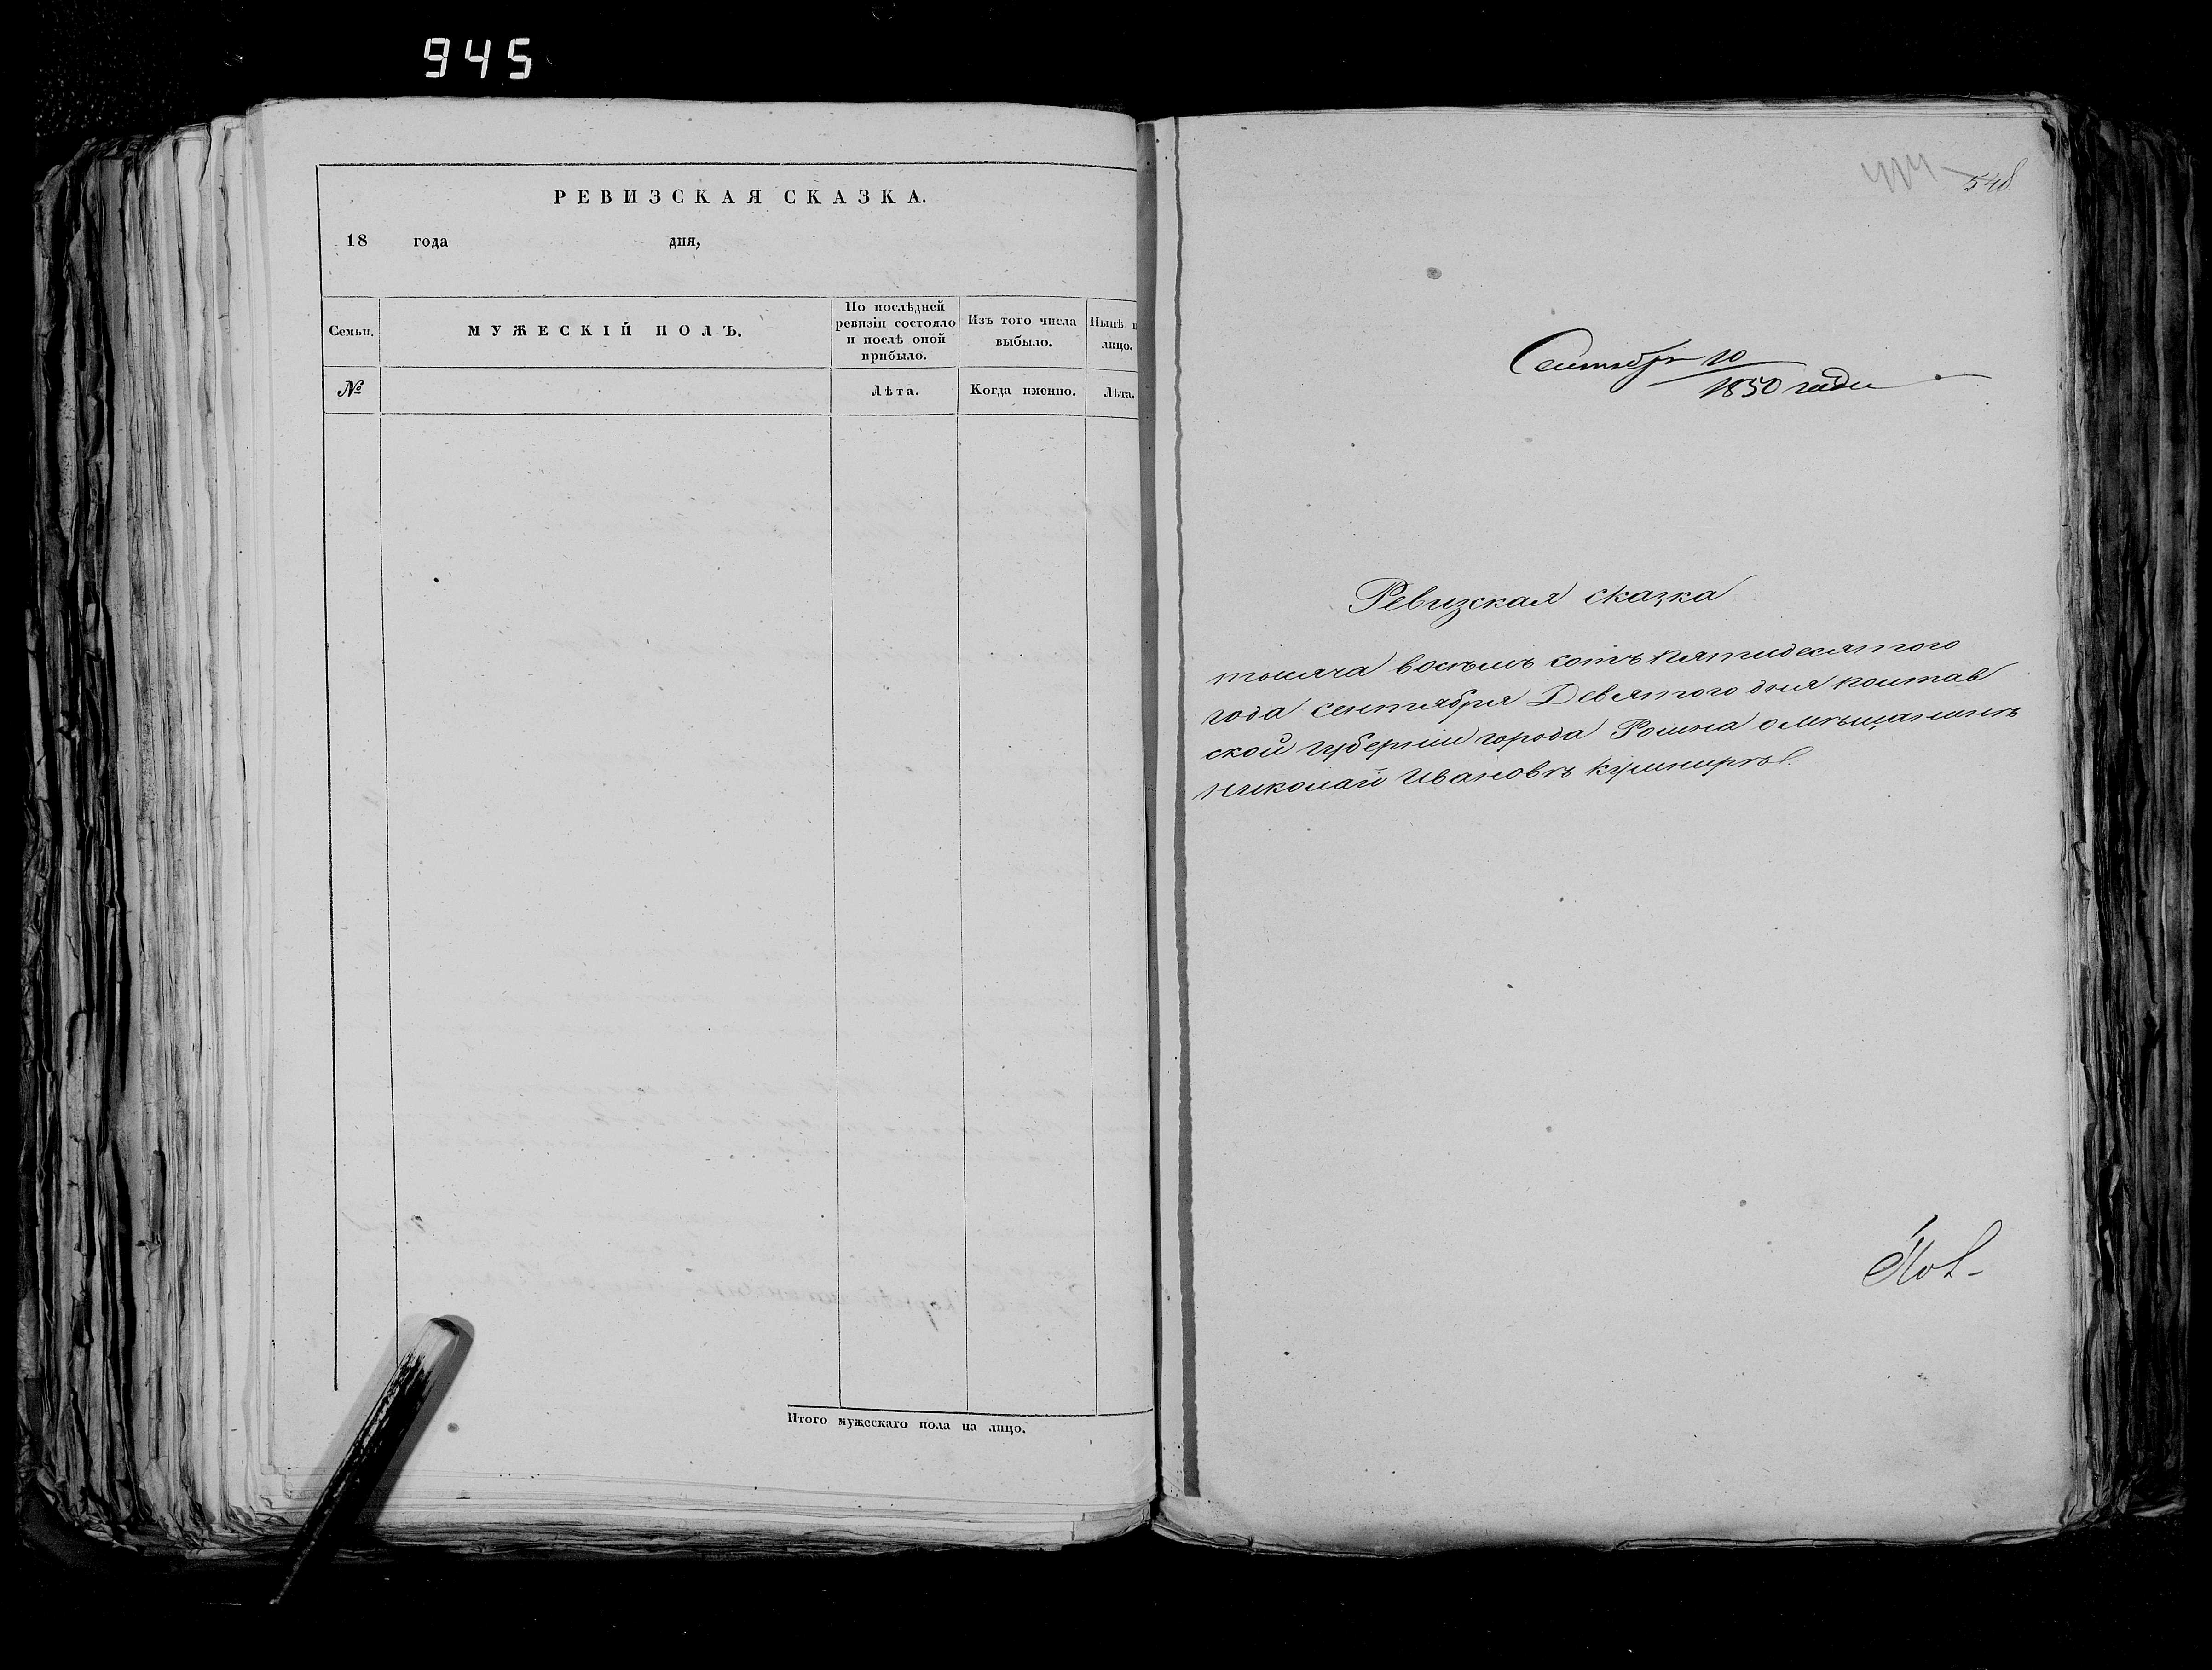 945
РЕВИЗСКАЯ СКАЗКА.
18 года дня,
Семьи.
МУЖЕСКІЙ ПОЛЪ.
По послѣдней
ревизіи состояло
и послѣ оной
прибыло.
Изъ того числа
выбыло.
Нынѣ н
лицо.
№
Лѣта.
Когда именно.
Лѣта.
Итого мужескаго пола на лицо.
548
Сентябр 10
1850 года
Ревизская сказка
тысяча восемь сотъ пятидесятого
года сентября Девятого дня полтав
ской губернии города Ромна о мѣщанинѣ
николай Ивановѣ кушнирѣв.